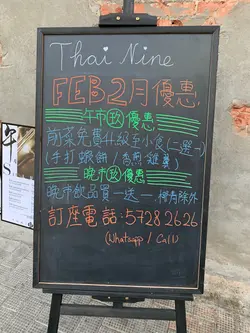 Thai Nine
FEB 2月優惠
午市優惠
前菜免費升級至小食(二選一)
(手打蝦餅/
晚市優惠
晚市飲品買一送一
訂座電話:5728 2626
(Whatsapp / Call)